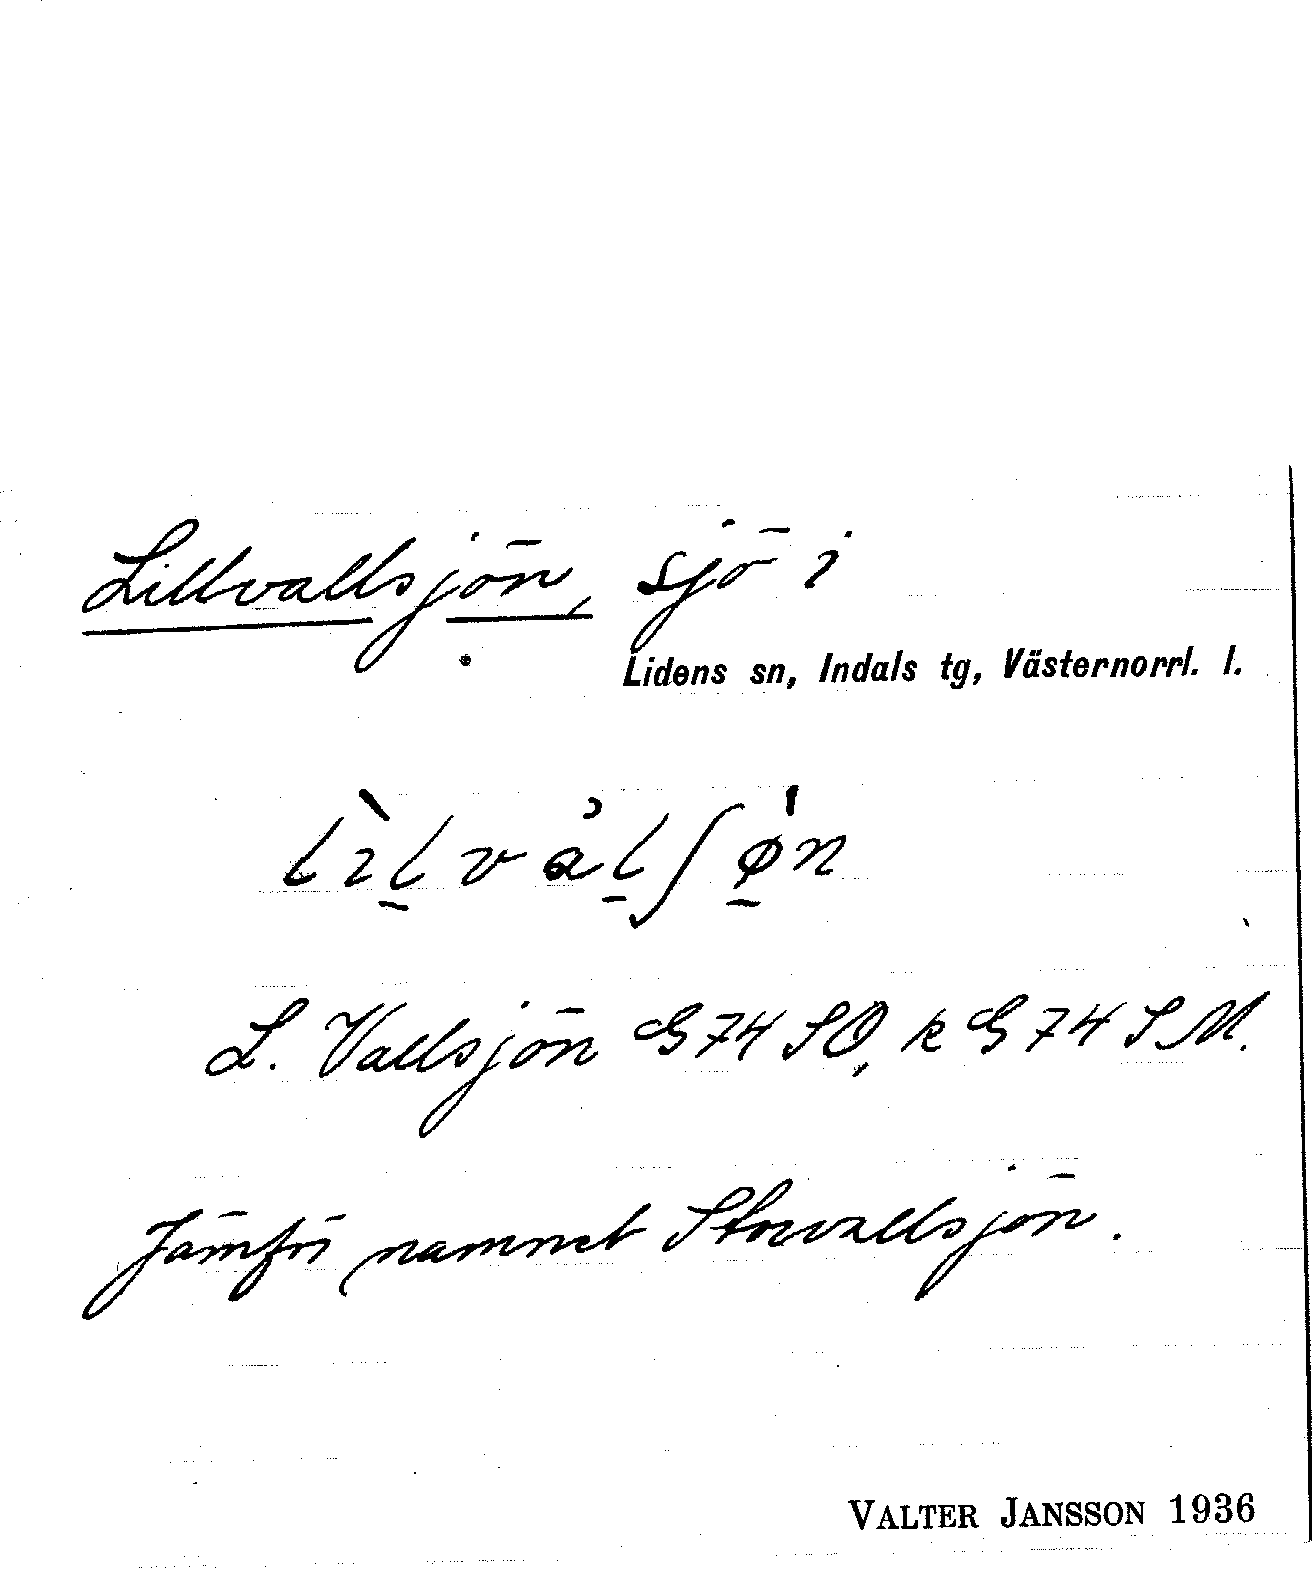 Lillvallsjön, sjö i
Lidens sn, Indals tg, Västernorrl. l.
L. Vallsjön G 74 SO, k G 74 S M.
Jämför namnet Storvallsjön.
VALTER JANSSON 1936